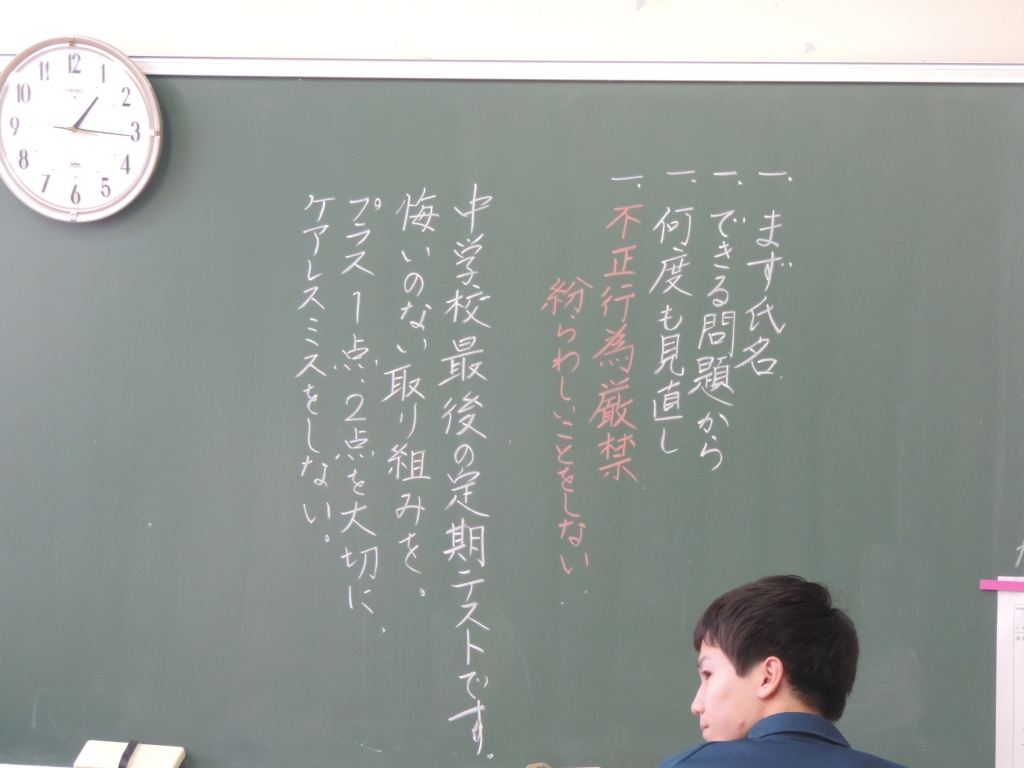 一、まず氏名
一、できる問題から
一、何度も見直し
一、不正行為厳禁
紛らわしいことをしない
中学校最後の定期テストです。
悔いのない取り組みを、
プラス1点、2点を大切に、
ケアレスミスをしない。
12
1
2
3
4
5
6
7
8
9
10
11
SEIKO